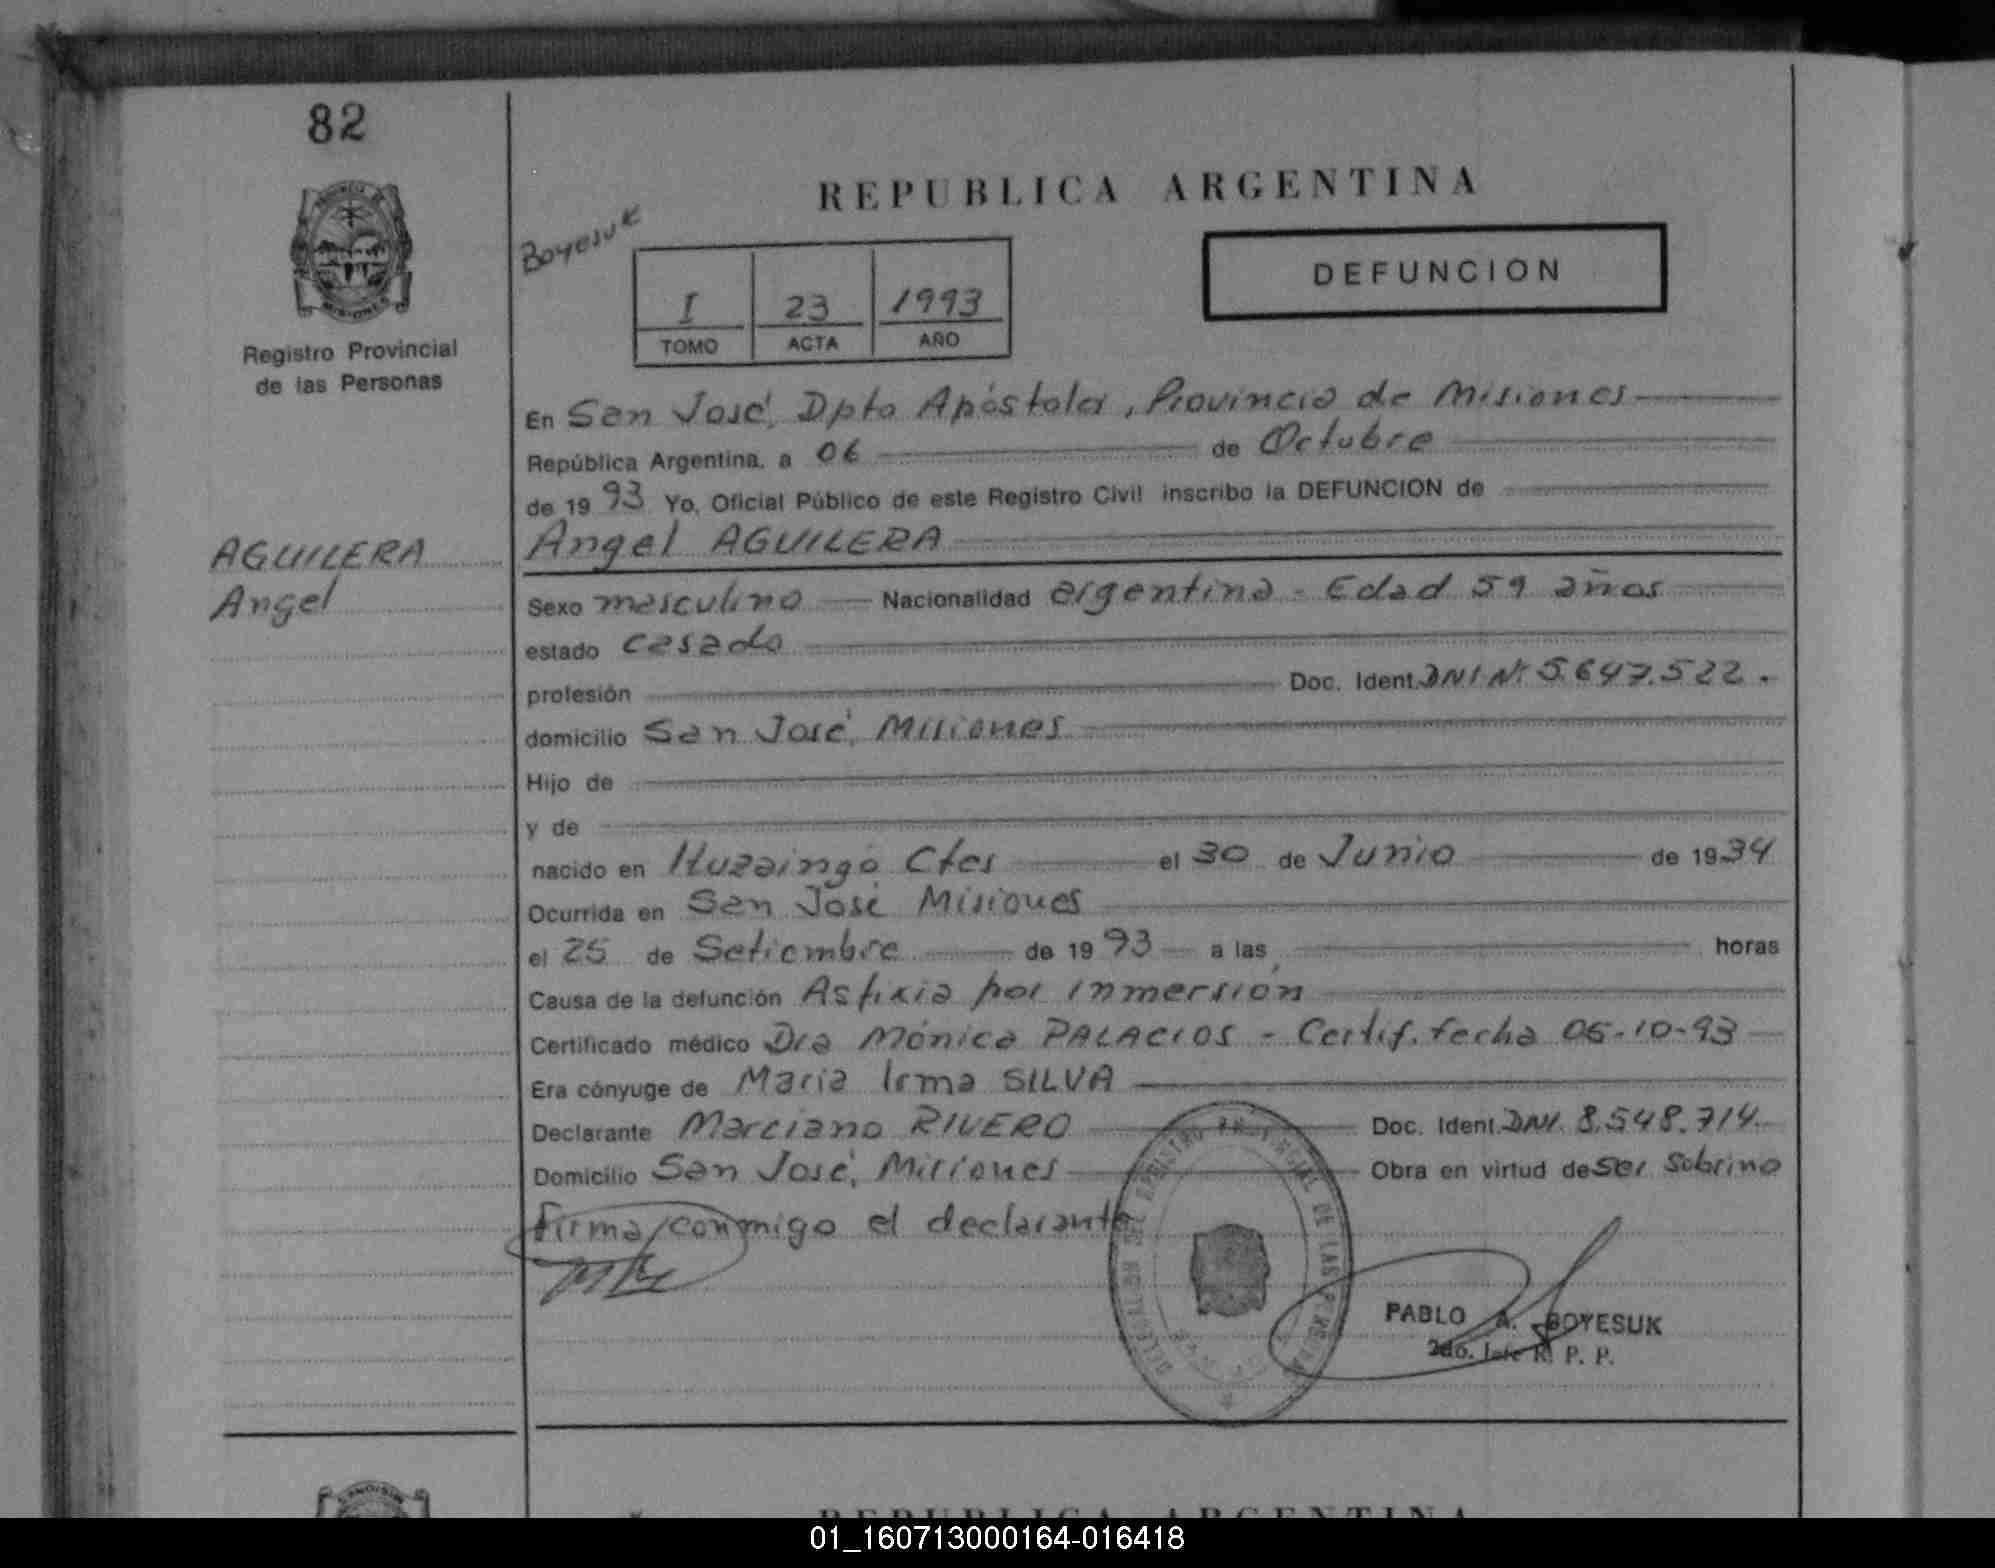 82
REPUBLICA ARGENTINA
Boyesuk
DEFUNCION
I 23 1993
TOMO ACTA AÑO
Registro Provincial
de las Personas
En San José, Dpto Apóstoles, Provincia de Misiones
República Argentina, a 06 de Octubre
de 1993 Yo, Oficial Público de este Registro Civil inscribo la DEFUNCION de
Angel AGUILERA
AGUILERA
Angel
Sexo masculino Nacionalidad argentina - Edad 59 años
estado casado
profesión Doc. Ident. DNI Nº 5.647.522.
domicilio San José, Misiones
Hijo de
y de
nacido en Ituzaingó Ctes el 30 de Junio de 1934
Ocurrida en San José Misiones
el 25 de Setiembre de 1993 a las horas
Causa de la defunción Asfixia por inmersión
Certificado médico Dra Mónica PALACIOS - Certif. fecha 05-10-93
Era cónyuge de María Irma SILVA
Declarante Marciano RIVERO Doc. Ident. DNI. 8.548.714.
Domicilio San José, Misiones Obra en virtud de ser sobrino
firma conmigo el declarante
DELEGACION DEL REGISTRO PROVINCIAL DE LAS PERSONAS
PABLO A. BOYESUK
2do. Jefe R. P. P.
REPUBLICA ARGENTINA
01_160713000164-016418